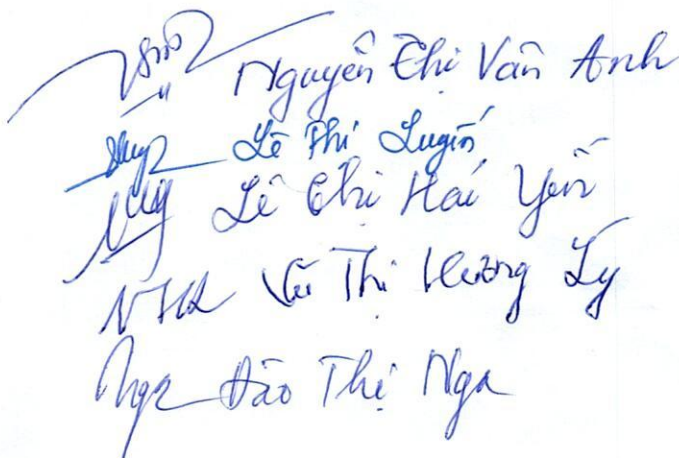 Nguyễn Thị Vân Anh
Lê Thị Luyến
Lê Thị Hải Yến
Vũ Thị Hương Ly
Nga Đào Thị Nga